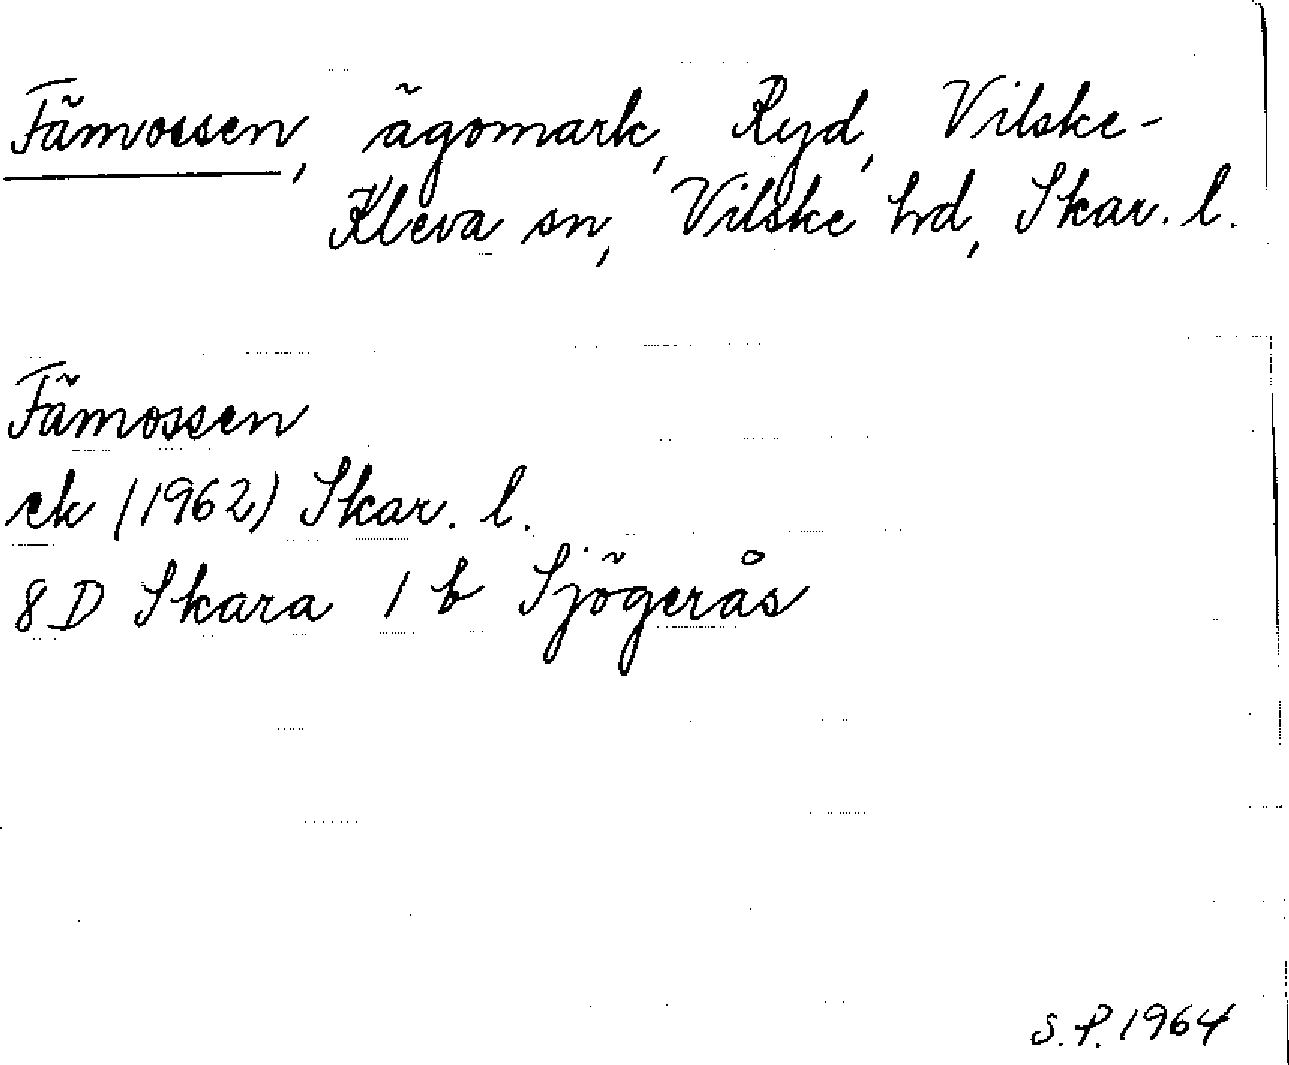 Fämossen, ägomark, Ryd, Vilske-
Kleva sn, Vilske hd, Skar. l.
Fämossen
ek (1962) Skar. l.
8D Skara 1 b Sjögerås
S.P. 1964